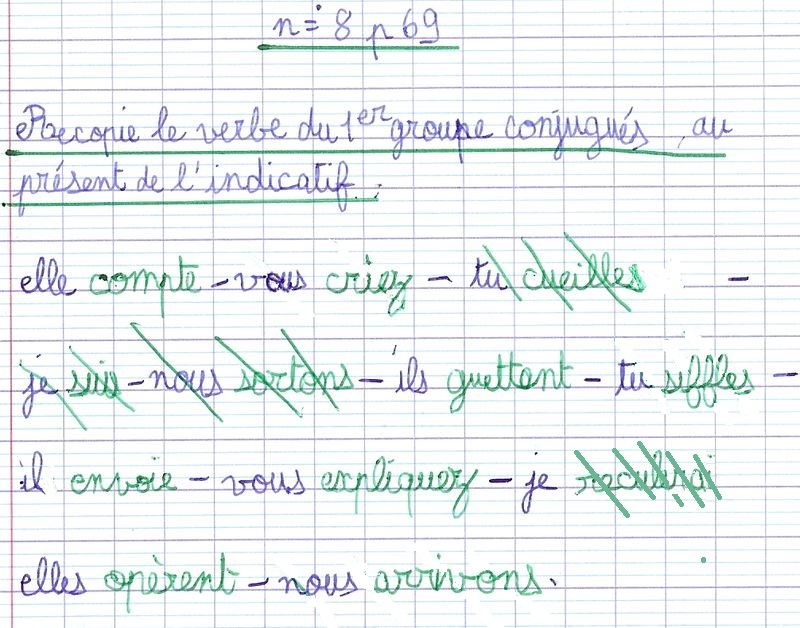 n=° 8 p 69
Recopie le verbe du 1er groupe conjugués au
présent de l'indicatif.
elle compte - vous criez - tu cueilles -
je suis - nous sortons - ils guettent - tu siffles -
il envoie - vous expliquez - je reculerai
elles opèrent - nous arrivons.